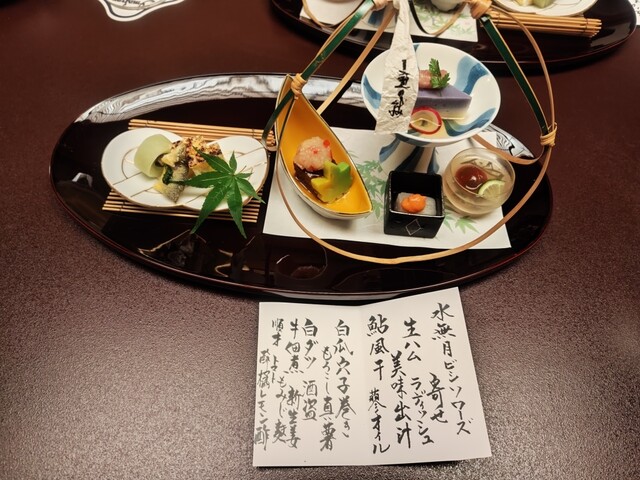 水無月ビシソワーズ
寄せ
ラディッシュ
生ハム 美味出汁
鮎風干 蓼オイル
白瓜穴子巻き
もろこし真薯
白ダツ 酒盗
もみじ麩
牛佃煮 新生姜
順才
レモン酢